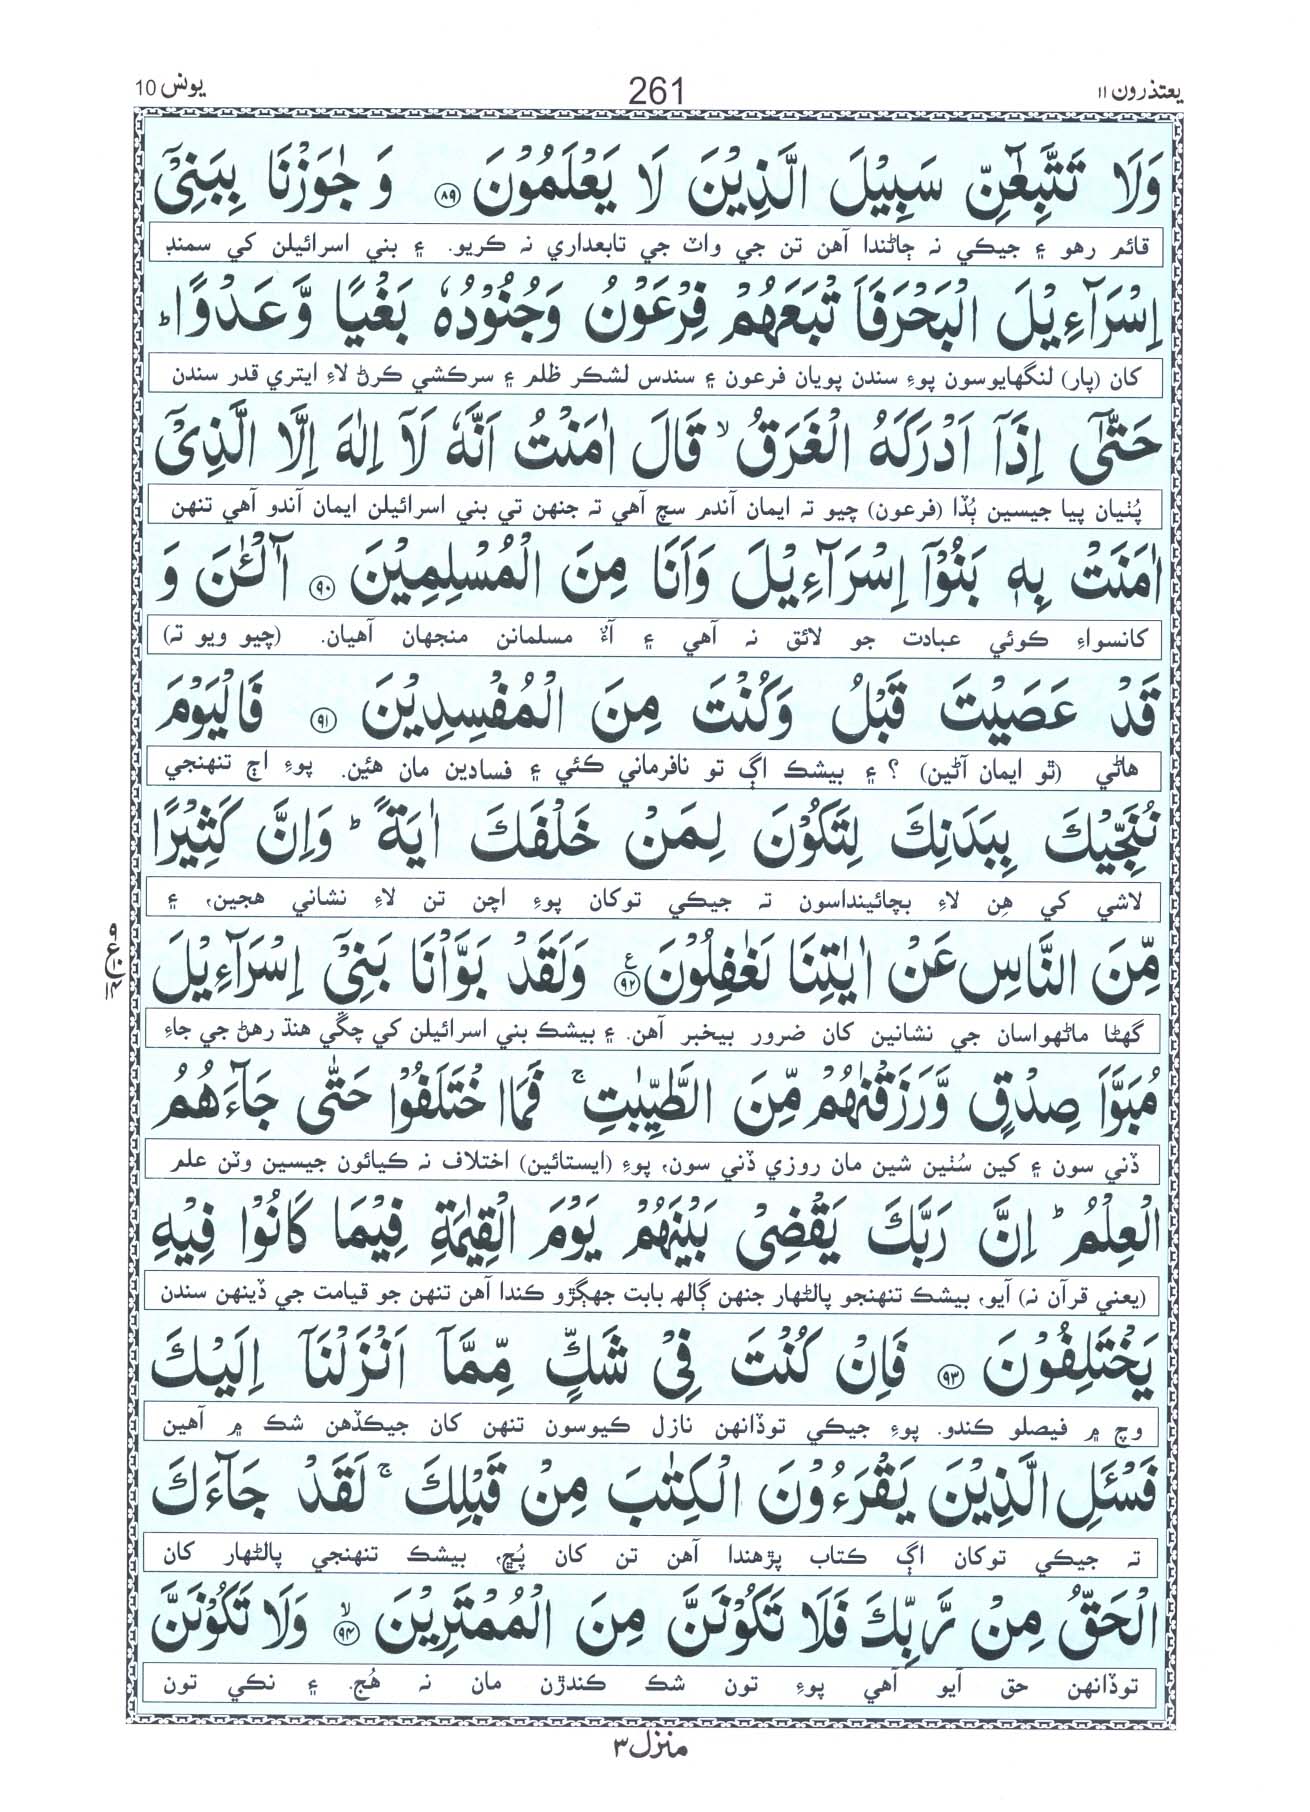 يعتذرون ١١
261
يونس 10
وَلَا تَتَّبِعٰٓنِّ سَبِيْلَ الَّذِيْنَ لَا يَعْلَمُوْنَ ۝٨٩ وَ جٰوَزْنَا بِبَنِيْٓ
قائم رهو ۽ جيڪي نہ ڄاڻندا آهن تن جي واٽ جي تابعداري نہ ڪريو. ۽ بني اسرائيلن کي سمنڊ
اِسْرَآءِيْلَ الْبَحْرَ فَاَ تْبَعَهُمْ فِرْعَوْنُ وَجُنُوْدُهٗ بَغْيًا وَّعَدْوًا ؕ
کان (پار) لنگهايوسون پوءِ سندن پويان فرعون ۽ سندس لشڪر ظلم ۽ سرڪشي ڪرڻ لاءِ ايتري قدر سندن
حَتّٰٓى اِذَآ اَدْرَكَهُ الْغَرَقُ ۙ قَالَ اٰمَنْتُ اَنَّهٗ لَآ اِلٰهَ اِلَّا الَّذِيْٓ
پُٺيان پيا جيسين ٻُڏا (فرعون) چيو تہ ايمان آندم سچ آهي تہ جنهن تي بني اسرائيلن ايمان آندو آهي تنهن
اٰمَنَتْ بِهٖ بَنُوْٓا اِسْرَآءِيْلَ وَاَنَا مِنَ الْمُسْلِمِيْنَ ۝٩٠ آٰلْـٰٔنَ وَ
کانسواءِ ڪوئي عبادت جو لائق نہ آهي ۽ آءٌ مسلمانن منجهان آهيان. (چيو ويو تہ)
قَدْ عَصَيْتَ قَبْلُ وَكُنْتَ مِنَ الْمُفْسِدِيْنَ ۝٩١ فَالْيَوْمَ
هاڻي (ٿو ايمان آڻين) ؟ ۽ بيشڪ اڳ تو نافرماني ڪئي ۽ فسادين مان هئين. پوءِ اڄ تنهنجي
نُنَجِّيْكَ بِبَدَنِكَ لِتَكُوْنَ لِمَنْ خَلْفَكَ اٰيَةً ؕ وَاِنَّ كَثِيْرًا
لاشي کي هِن لاءِ بچائينداسون تہ جيڪي توکان پوءِ اچن تن لاءِ نشاني هجين، ۽
مِّنَ النَّاسِ عَنْ اٰيٰتِنَا لَغٰفِلُوْنَ ۝٩٢ ع وَلَقَدْ بَوَّاْنَا بَنِيْٓ اِسْرَآءِيْلَ
گهڻا ماڻهو اسان جي نشانين کان ضرور بيخبر آهن. ۽ بيشڪ بني اسرائيلن کي چڱي هنڌ رهڻ جي جاءِ
مُبَوَّاَ صِدْقٍ وَّرَزَقْنٰهُمْ مِّنَ الطَّيِّبٰتِ ۚ فَمَا اخْتَلَفُوْا حَتّٰى جَآءَهُمُ
ڏني سون ۽ کين سُٺين شين مان روزي ڏني سون، پوءِ (ايستائين) اختلاف نہ ڪيائون جيسين وٽن علم
الْعِلْمُ ؕ اِنَّ رَبَّكَ يَقْضِيْ بَيْنَهُمْ يَوْمَ الْقِيٰمَةِ فِيْمَا كَانُوْا فِيْهِ
(يعني قرآن نہ) آيو، بيشڪ تنهنجو پالڻهار جنهن ڳالهہ بابت جهڳڙو ڪندا آهن تنهن جو قيامت جي ڏينهن سندن
يَخْتَلِفُوْنَ ۝٩٣ فَاِنْ كُنْتَ فِيْ شَكٍّ مِّمَّآ اَنْزَلْنَآ اِلَيْكَ
وچ ۾ فيصلو ڪندو. پوءِ جيڪي توڏانهن نازل ڪيوسون تنهن کان جيڪڏهن شڪ ۾ آهين
فَسْـَٔلِ الَّذِيْنَ يَقْرَءُوْنَ الْكِتٰبَ مِنْ قَبْلِكَ ۚ لَقَدْ جَآءَكَ
تہ جيڪي توکان اڳ ڪتاب پڙهندا آهن تن کان پُڇ، بيشڪ تنهنجي پالڻهار کان
الْحَقُّ مِنْ رَّبِّكَ فَلَا تَكُوْنَنَّ مِنَ الْمُمْتَرِيْنَ ۝٩٤ۙ وَلَا تَكُوْنَنَّ
توڏانهن حق آيو آهي پوءِ تون شڪ ڪندڙن مان نہ هُج. ۽ نڪي تون
منزل ٣